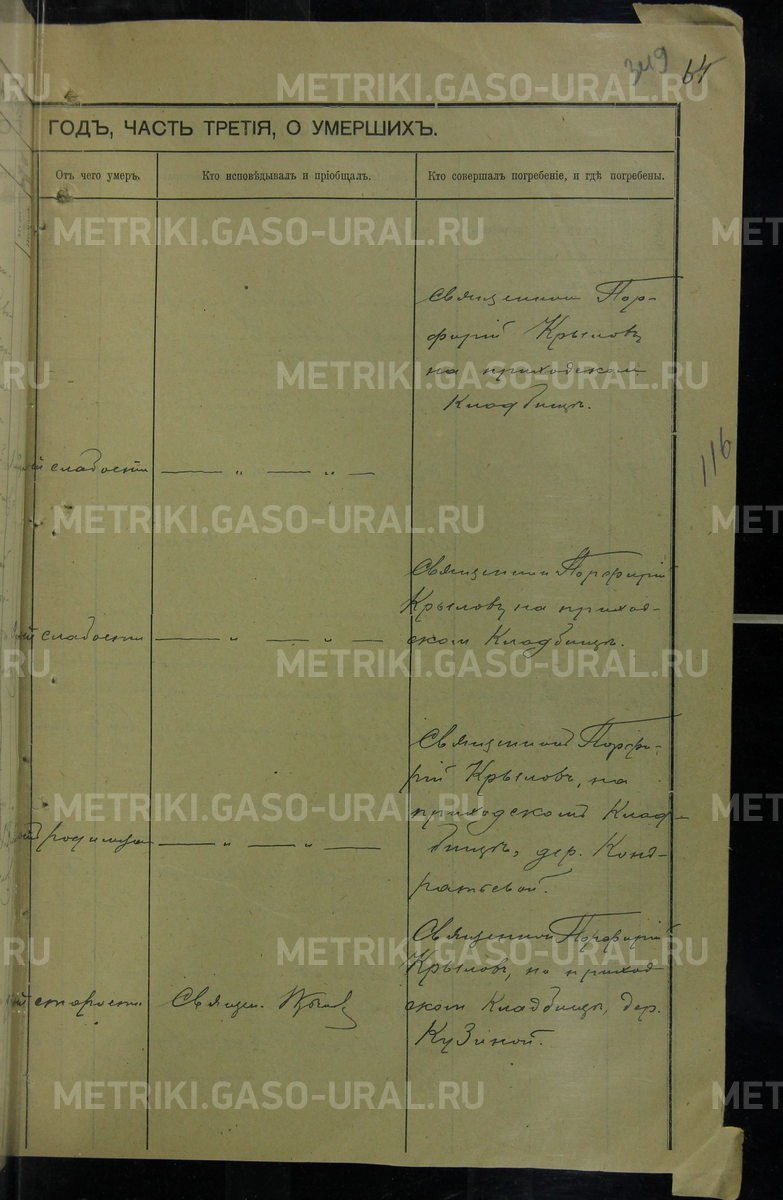 349 64
ГОДЪ, ЧАСТЬ ТРЕТІЯ, О УМЕРШИХЪ.
Отъ чего умеръ.
Кто исповѣдывалъ и пріобщалъ.
Кто совершалъ погребеніе, и гдѣ погребены.
Священник Пор-
фирій Крыловъ
на приходском
Кладбищѣ.
116
слабости — „ — „ —
Священник Порфирій
Крыловъ на приход-
ском Кладбищѣ.
слабости — „ — „ —
Священникъ Порфи-
рій Крыловъ, на
приходскомъ Клад-
бищѣ, дер. Конд-
ратьевой.
родимца — „ — „ —
Священник Порфирій
Крыловъ, на приход-
ском Кладбищѣ, дер.
Кузиной.
старости
Священ. Крылов
METRIKI.GASO-URAL.RU